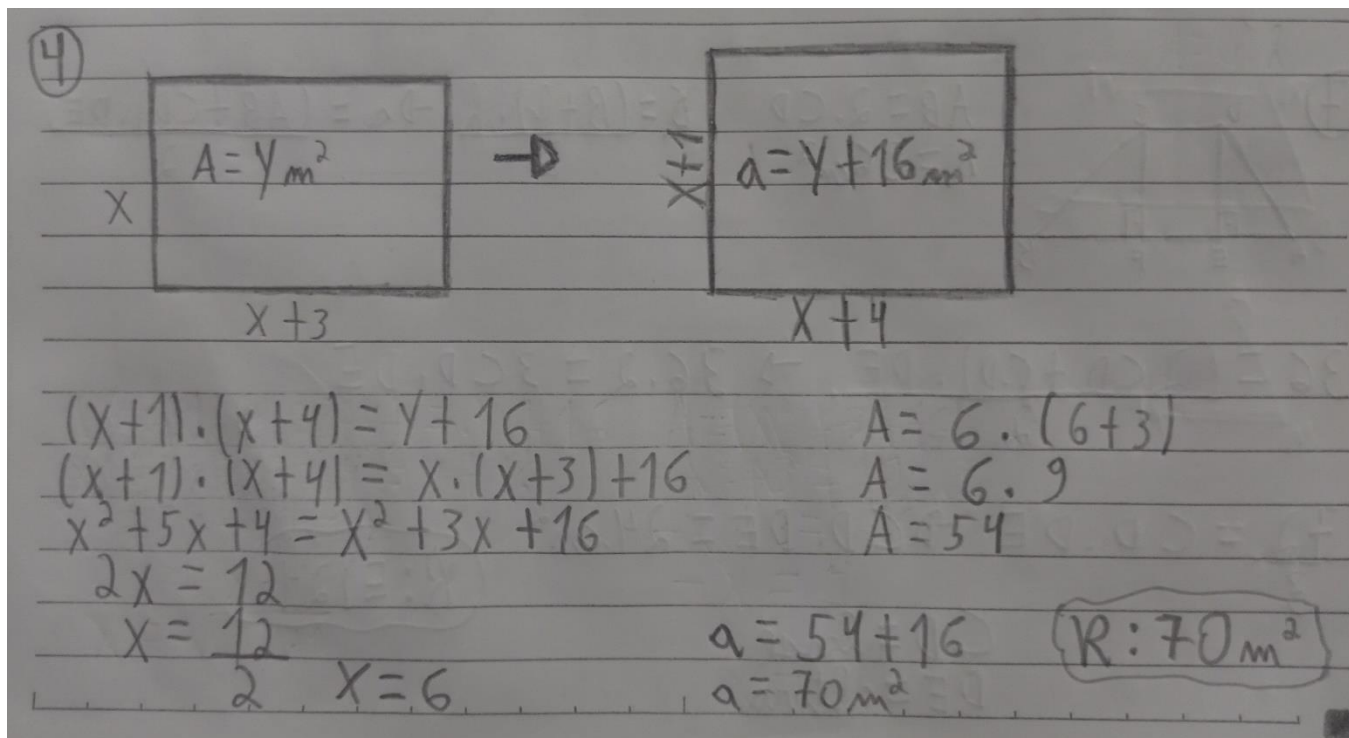 4
A = y m²
x
x + 3
x + 1
a = y + 16 m²
x + 4
(x+1).(x+4) = y + 16
(x+1).(x+4) = x.(x+3) + 16
x² + 5x + 4 = x² + 3x + 16
2x = 12
x = 12/2 x = 6
A = 6.(6+3)
A = 6.9
A = 54
a = 54 + 16
a = 70 m²
R: 70 m²